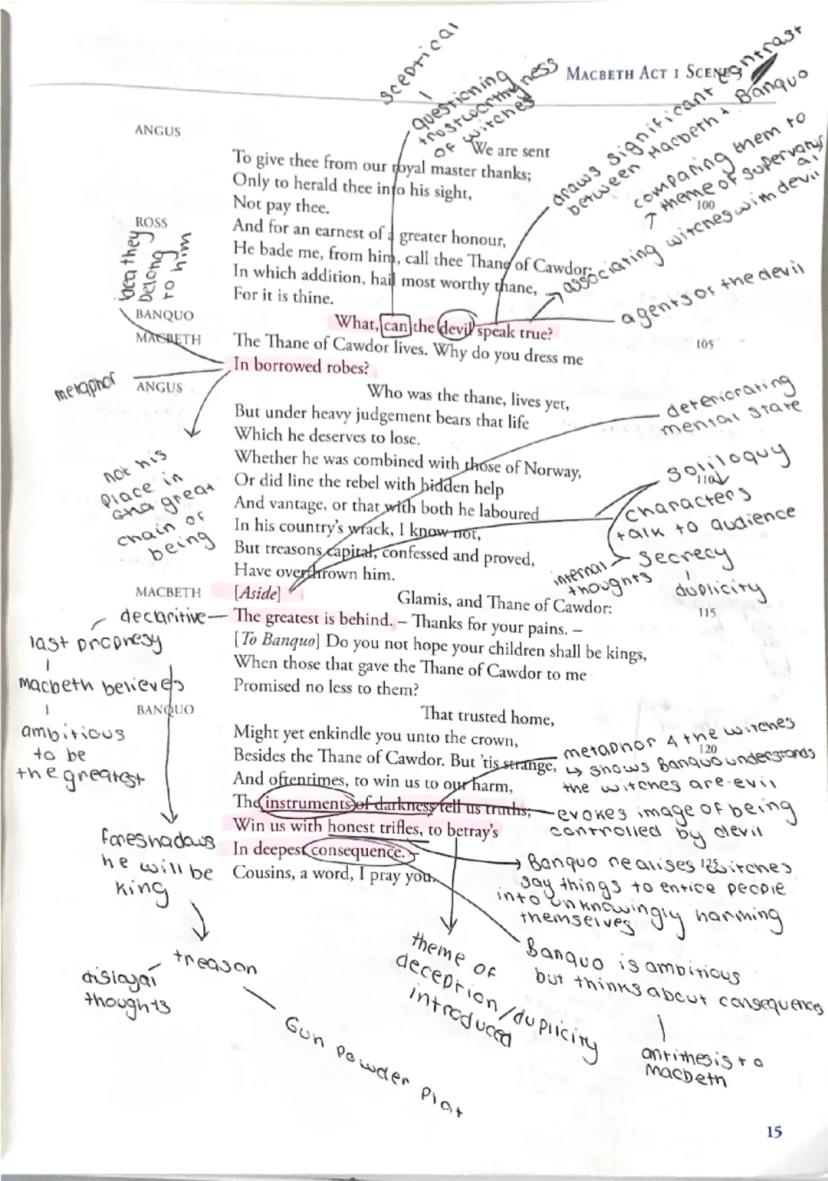 sceptical
questioning
trustworthyness
of witches
MACBETH ACT 1 SCENE
draws significant contrast
between Macbeth + Banquo
comparing them to
theme of supernatural
associating witches with devil
agents of the devil
ANGUS
We are sent
To give thee from our royal master thanks;
Only to herald thee into his sight,
Not pay thee.
100
ROSS
And for an earnest of a greater honour,
He bade me, from him, call thee Thane of Cawdor:
In which addition, hail most worthy thane,
For it is thine.
they
belong
to him
BANQUO
What, can the devil speak true?
MACBETH
The Thane of Cawdor lives. Why do you dress me
105
In borrowed robes?
metaphor
not his
place in
great
chain of
being
ANGUS
Who was the thane, lives yet,
But under heavy judgement bears that life
Which he deserves to lose.
Whether he was combined with those of Norway,
Or did line the rebel with hidden help
110
And vantage, or that with both he laboured
In his country's wrack, I know not,
But treasons capital, confessed and proved,
Have overthrown him.
deteriorating
mental state
soliloquy
characters
talk to audience
secrecy
internal
thoughts
duplicity
MACBETH
[Aside]
Glamis, and Thane of Cawdor:
The greatest is behind. – Thanks for your pains. –
115
[To Banquo] Do you not hope your children shall be kings,
When those that gave the Thane of Cawdor to me
Promised no less to them?
declaritive
last prophesy
macbeth believes
ambitious
to be
the greatest
foreshadows
he will be
king
treason
disloyal
thoughts
Gun Powder Plot
BANQUO
That trusted home,
Might yet enkindle you unto the crown,
Besides the Thane of Cawdor. But 'tis strange,
120
And oftentimes, to win us to our harm,
The instruments of darkness tell us truths;
Win us with honest trifles, to betray's
In deepest consequence. –
125
Cousins, a word, I pray you.
metaphor 4 the witches
shows Banquo understands
the witches are evil
evokes image of being
controlled by devil
Banquo realises witches
say things to entice people
into unknowingly harming
themselves
Banquo is ambitious
but thinks about consequences
antithesis to
Macbeth
theme of
deception/duplicity
introduced
15